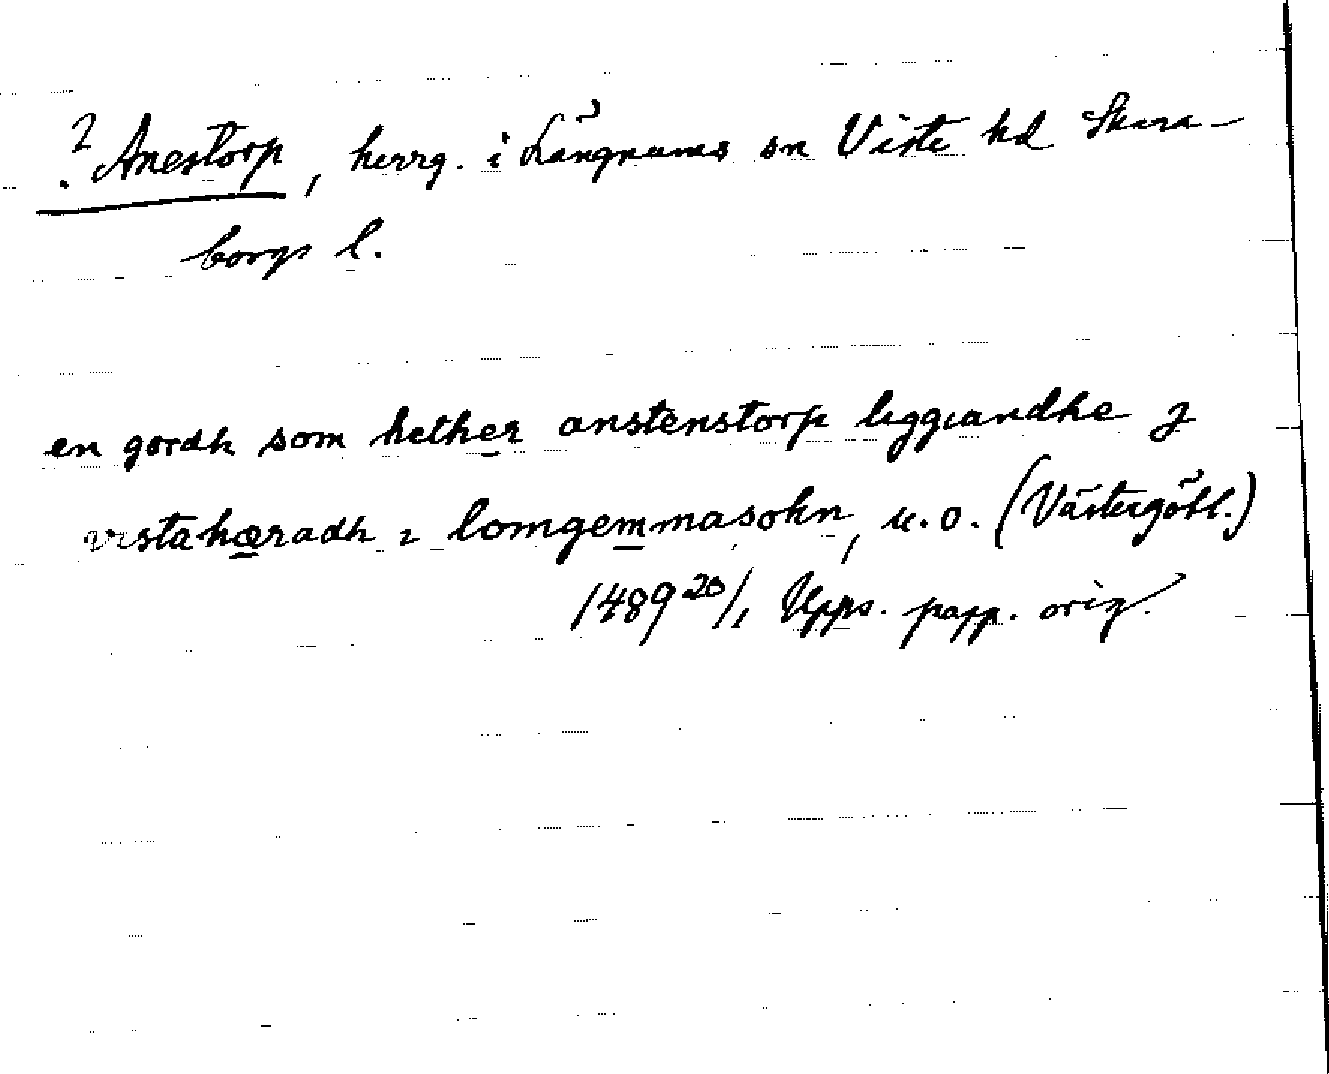 ? Anestorp, herrg. i Långnums sn Viste hd Skara-
borgs l.
en gordh som hether anstenstorp liggiandhe j
vistahæradh i lomgemmasokn, u. o. (Västergötl.)
1489 20/1 Upps. papp. orig.